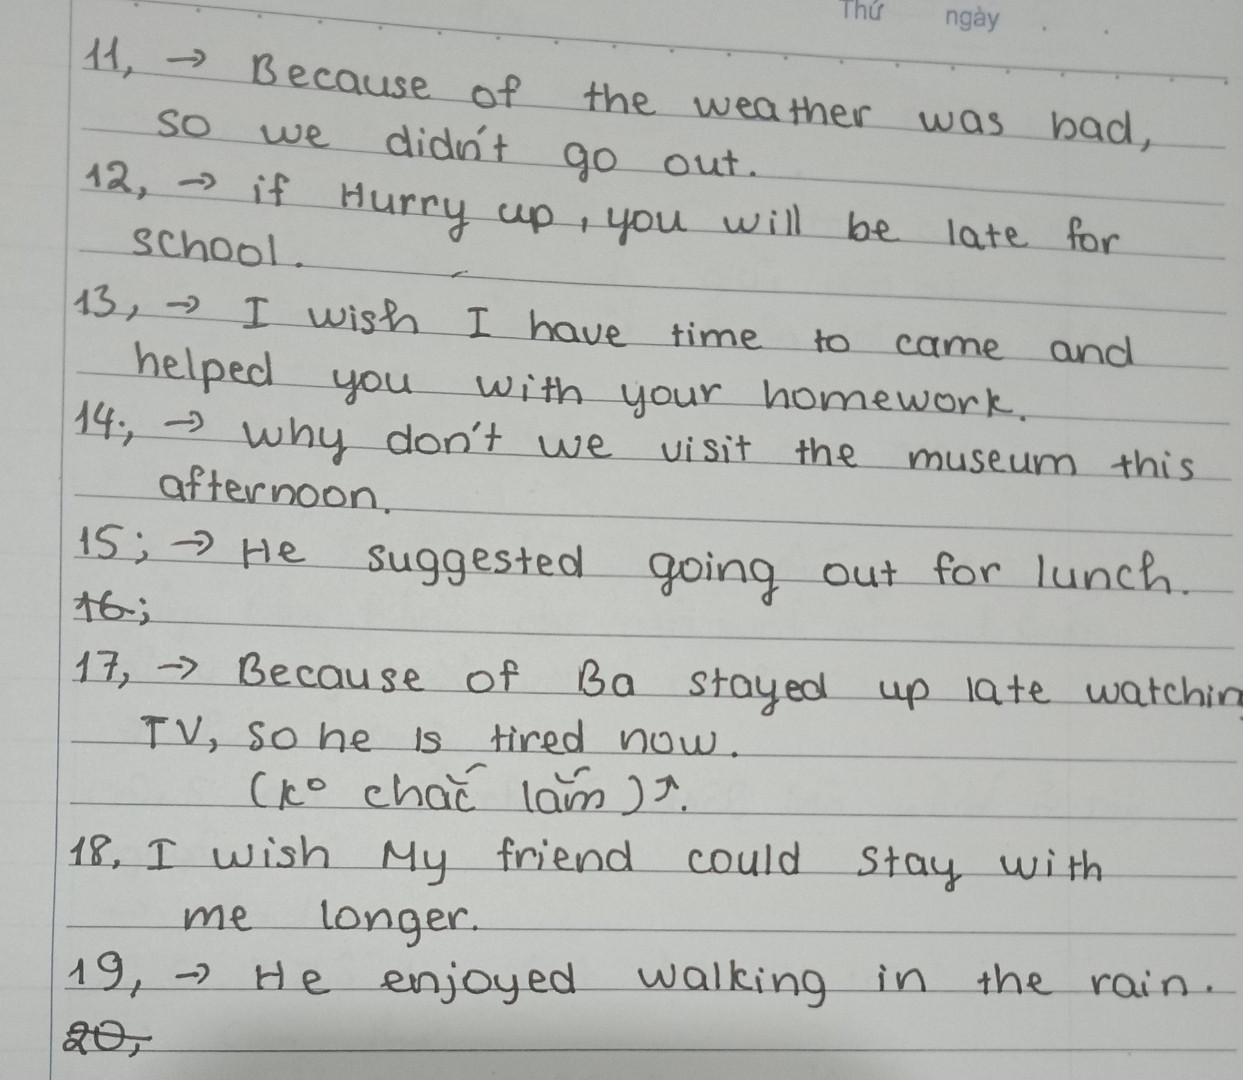 Thứ ngày
11, → Because of the weather was bad,
so we didn't go out.
12, → if Hurry up, you will be late for
school.
13, → I wish I have time to came and
helped you with your homework.
14;, → Why don't we visit the museum this
afternoon.
15; → He suggested going out for lunch.
16;
17, → Because of Ba stayed up late watchin
TV, so he is tired now.
(ko chắc lắm)↗.
18, I wish My friend could stay with
me longer.
19, → He enjoyed walking in the rain.
20,